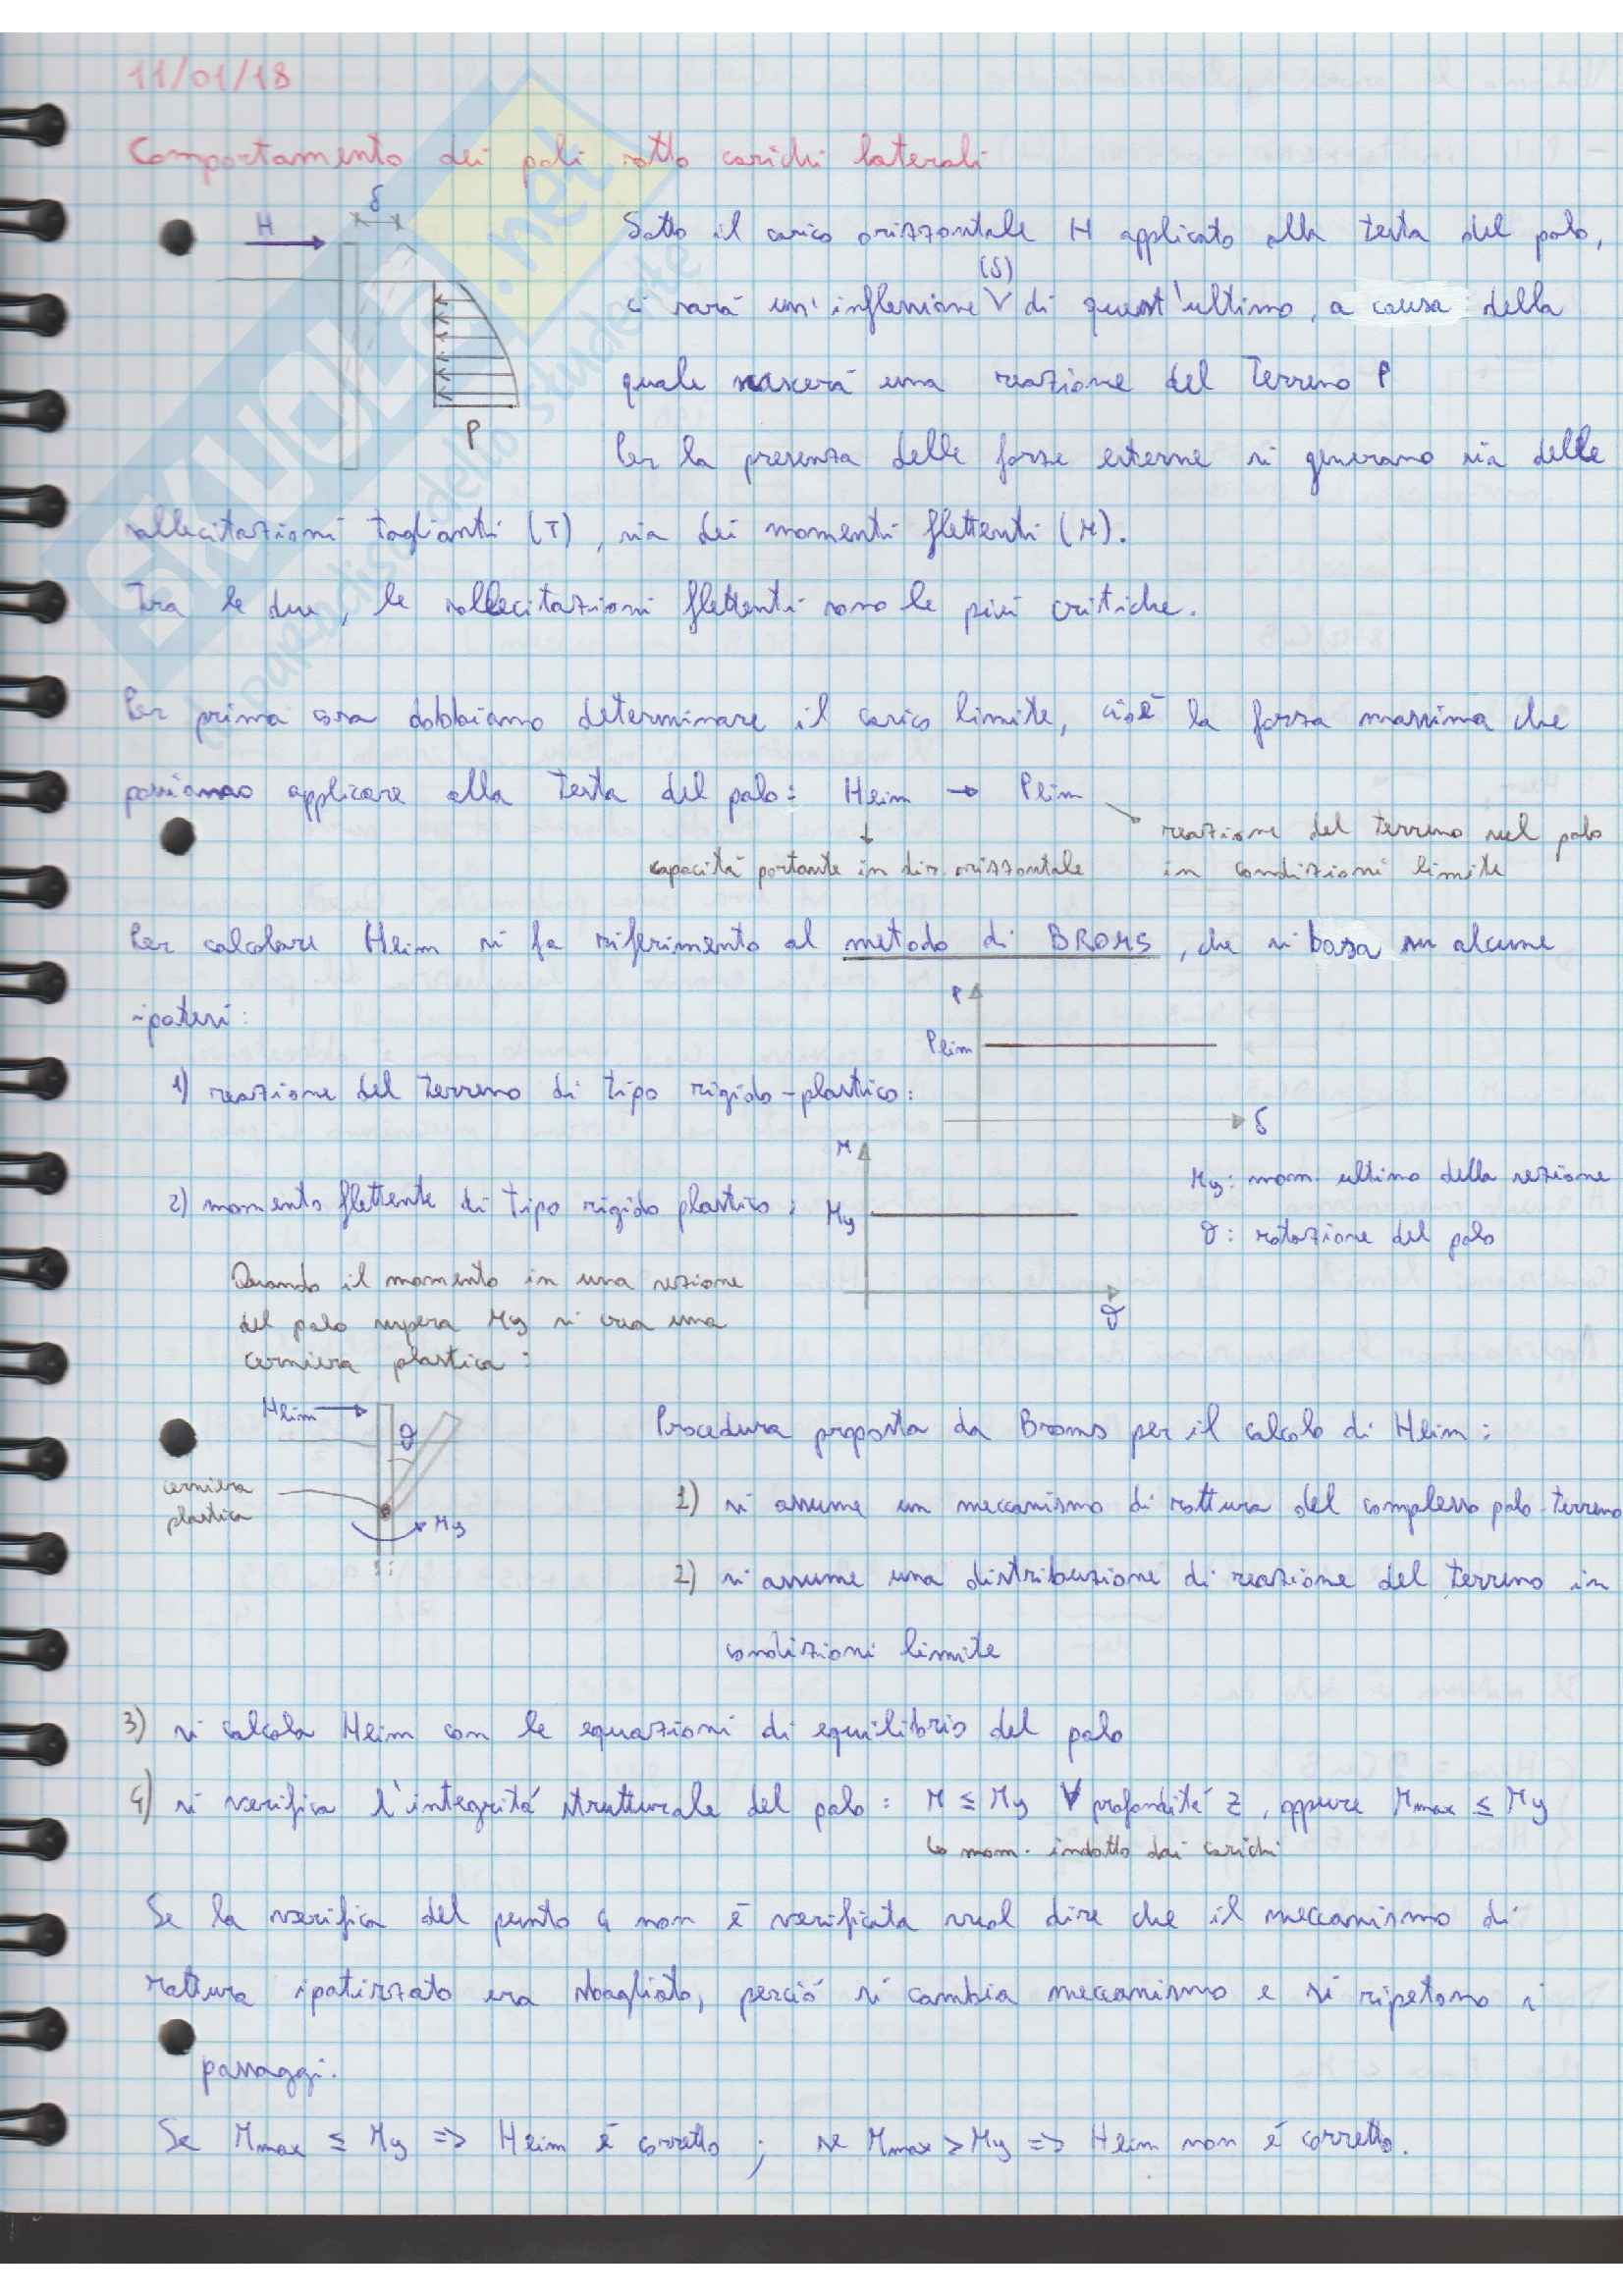 11/01/18
Comportamento dei pali sotto carichi laterali
H
δ
P
Sotto il carico orizzontale H applicato alla testa del palo,
(δ)
ci sarà un'inflessione di quest'ultimo, a causa della
quale nascerà una reazione del terreno P
Per la presenza delle forze esterne si generano sia delle
sollecitazioni taglianti (T), sia dei momenti flettenti (M).
Tra le due, le sollecitazioni flettenti sono le più critiche.
Per prima cosa dobbiamo determinare il carico limite, cioè la forza massima che
possiamo applicare alla testa del palo: Hlim → Plim
reazione del terreno sul palo
capacità portante in dir. orizzontale
in condizioni limite
Per calcolare Hlim si fa riferimento al metodo di BROMS, che si basa su alcune
ipotesi:
P
Plim
δ
1) reazione del terreno di tipo rigido-plastico:
M
2) momento flettente di tipo rigido plastico:
My
My: mom. ultimo della sezione
ϑ: rotazione del palo
ϑ
Quando il momento in una sezione
del palo supera My si crea una
cerniera plastica:
Hlim
ϑ
cerniera
plastica
My
Procedura proposta da Broms per il calcolo di Hlim:
1) si assume un meccanismo di rottura del complesso palo-terreno
2) si assume una distribuzione di reazione del terreno in
condizioni limite
3) si calcola Hlim con le equazioni di equilibrio del palo
4) si verifica l'integrità strutturale del palo: M ≤ My ∀ profondità z, oppure Mmax ≤ My
↳ mom. indotto dai carichi
Se la verifica del punto 4 non è verificata vuol dire che il meccanismo di
rottura ipotizzato era sbagliato, perciò si cambia meccanismo e si ripetono i
passaggi.
Se Mmax ≤ My => Hlim è corretto ; se Mmax > My => Hlim non è corretto.
SKUOLA.net
dello studente